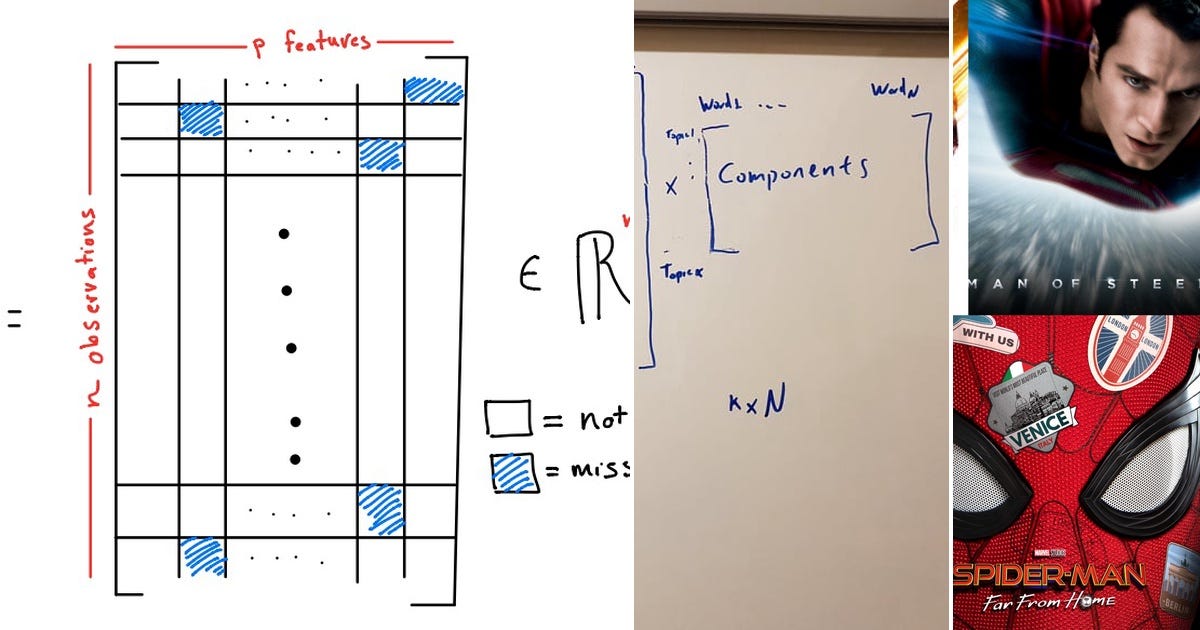 p features
n observations
=
∈ ℝ
= not
= miss
Word1 ... WordN
Topic1
x
Components
TopicK
K x N
MAN OF STEE
WITH US
LONDON
LONDON
VISIT WORLD'S MOST BEAUTIFUL PLACE
VENICE
ITALY
MARVEL STUDIOS
SPIDER-MAN
Far From Home
BERLIN